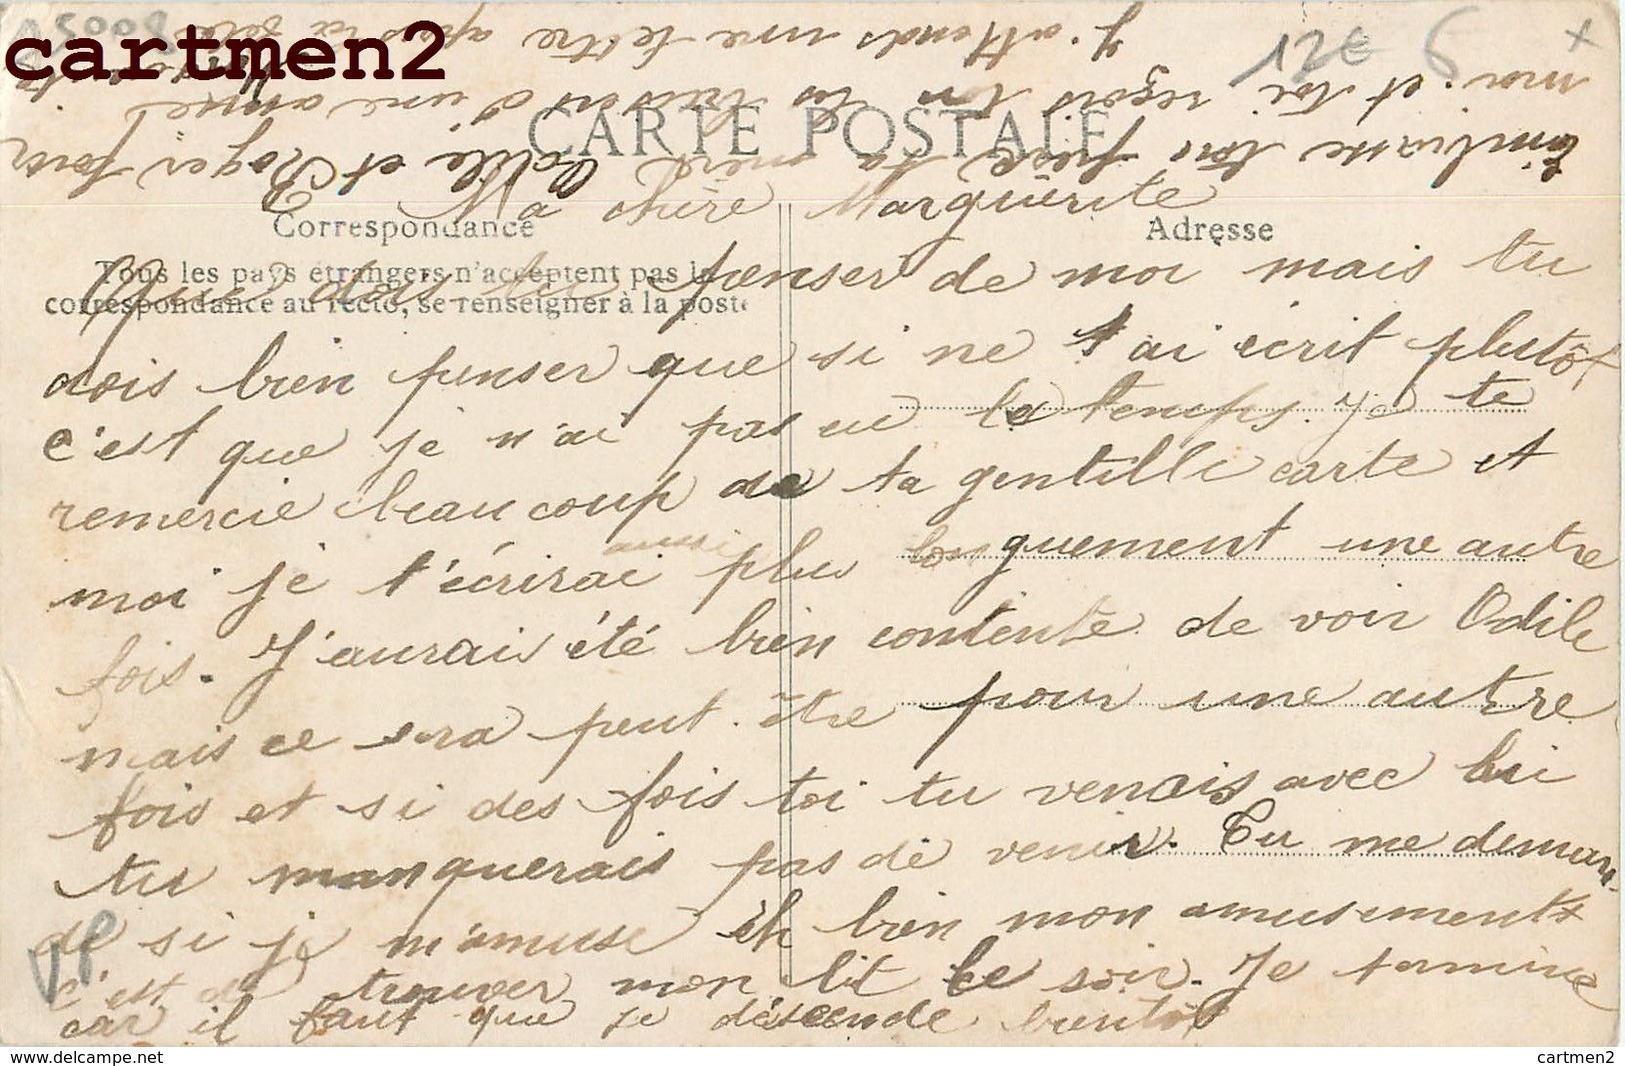 cartmen2
12€
CARTE POSTALE
Correspondance
Adresse
Tous les pays étrangers n'acceptent pas la
correspondance au recto, se renseigner à la poste
Ma chère Marguerite
Que dois tu penser de moi mais tu
dois bien penser que si ne t'ai écrit plutôt
c'est que je n'ai pas eu le temps. Je te
remercie beaucoup de ta gentille carte et
moi je t'écrirai aussi plus longuement une autre
fois. J'aurais été bien contente de voir Odile
mais ce sera peut-être pour une autre
fois et si des fois toi tu venais avec lui
tu manquerais pas de venir. Tu me deman-
de si je m'amuse eh bien mon amusement
c'est de trouver mon lit le soir. Je termine
car il faut que je déscende bientôt
Embrasse ton frère ta mère Odile et Roger pour
moi et toi, reçois ton les baisers d'une amie
J'attends une lettre
cartmen2
cartmen2